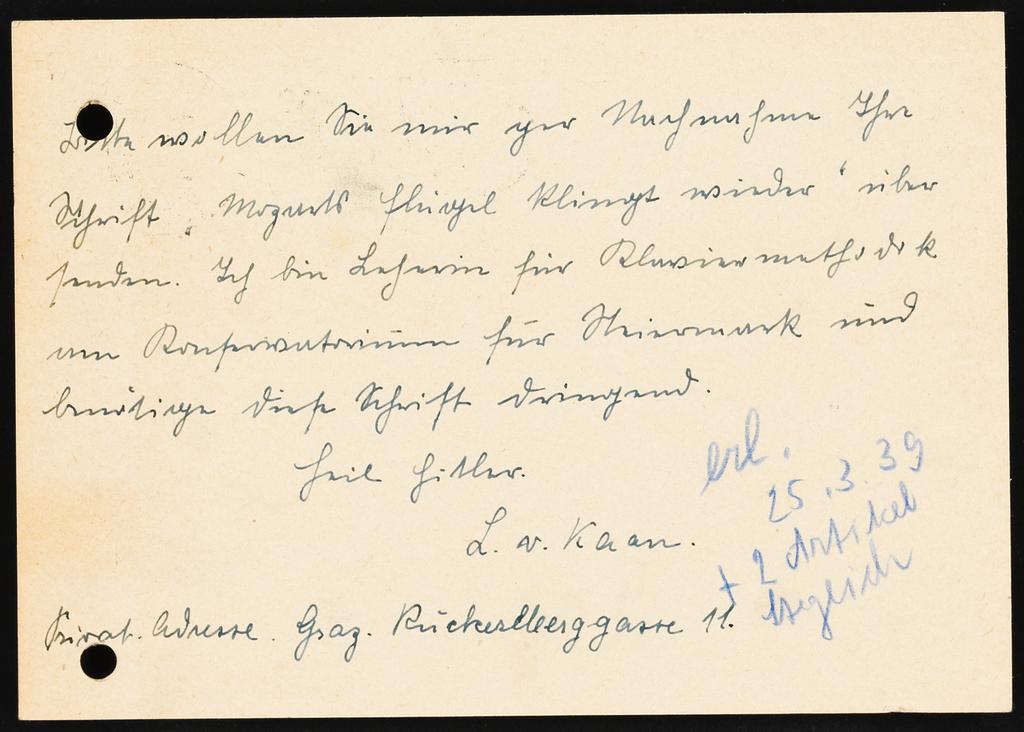 Bitte wollen Sie mir per Nachnahme Ihre
Schrift „Mozarts Flügel klingt wieder“ über
senden. Ich bin Lehrerin für Klaviermethodik
am Konservatorium für Steiermark und
benötige diese Schrift dringend.
Heil Hitler.
L. v. Kaan.
Privat. Adresse. Graz. Rückerlberggasse 11.
erl.
25.3.39
+ 2 Artikel